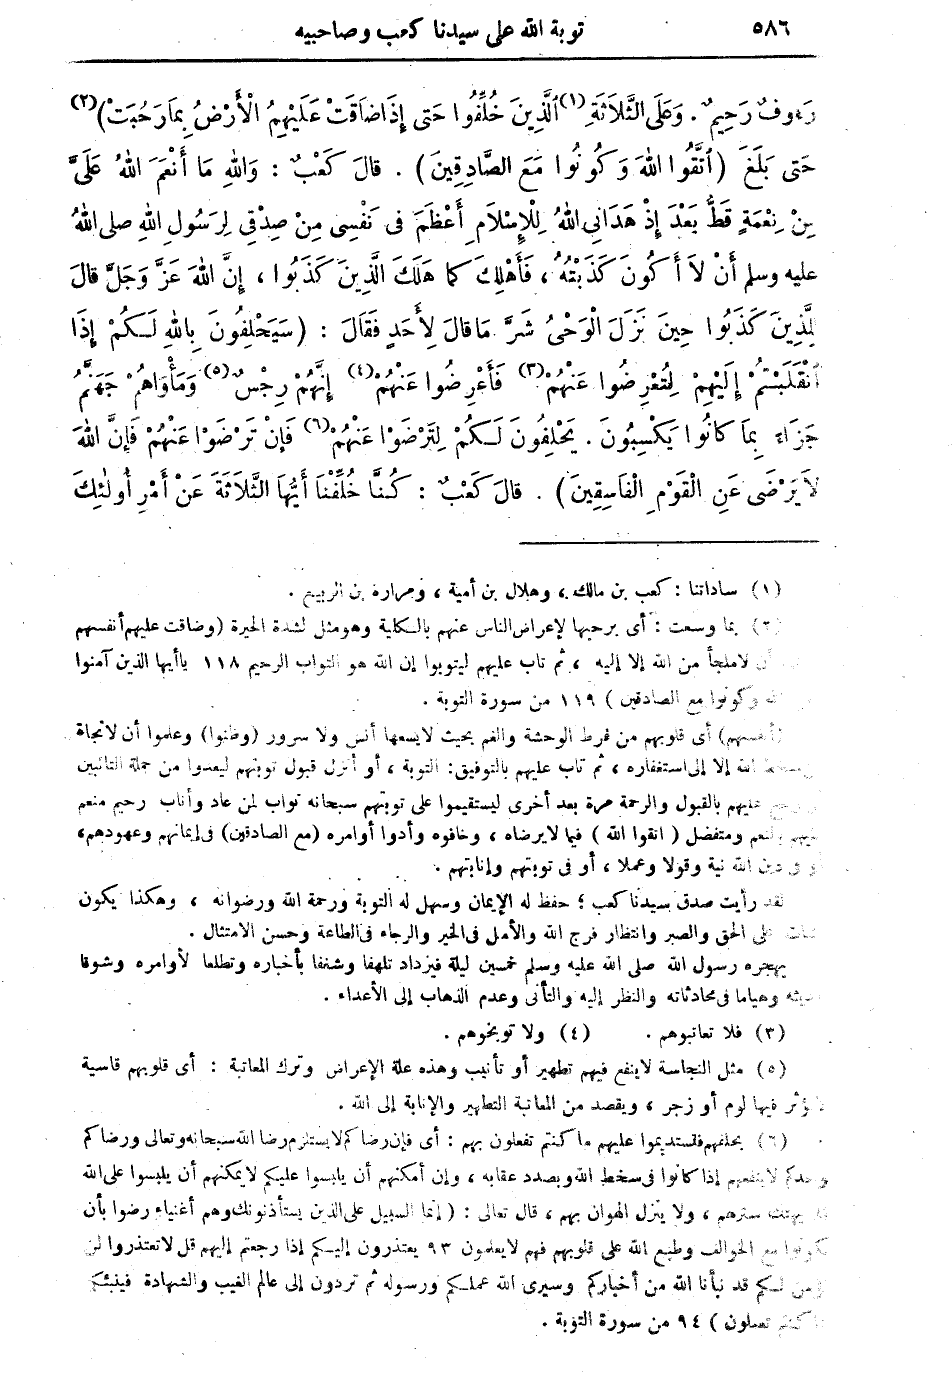 ٥٨٦ توبة الله على سيدنا كعب وصاحبيه
رَءُوفٌ رَحِيمٌ . وَعَلَى الثَّلَاثَةِ (١) الَّذِينَ خُلِّفُوا حَتى إِذَا ضَاقَتْ عَلَيْهِمُ الْأَرْضُ بِمَا رَحُبَتْ) (٢)
حَتى بَلَغَ (اتَّقُوا اللهَ وَكُونُوا مَعَ الصَّادِقِينَ) . قالَ كَعْبٌ : وَاللهِ مَا أَنْعَمَ اللهُ عَلَىَّ
مِنْ نِعْمَةٍ قَطُّ بَعْدَ إِذْ هَدَانِي اللهُ لِلْإِسْلَامِ أَعْظَمَ فى نَفْسِى مِنْ صِدْقِي لِرَسُولِ اللهِ صلى اللهُ
عليه وسلم أَنْ لاَ أَكُونَ كَذَبْتُهُ ، فَأَهْلِكَ كما هَلَكَ الَّذِينَ كَذَبُوا ، إِنَّ اللهَ عَزَّ وَجَلَّ قالَ
لِلَّذِينَ كَذَبُوا حِينَ نَزَلَ الْوَحْىُ شَرَّ مَا قالَ لِأَحَدٍ فَقَالَ : (سَيَحْلِفُونَ بِاللهِ لَكُمْ إِذَا
انْقَلَبْتُمْ إِلَيْهِمْ لِتُعْرِضُوا عَنْهُمْ (٣) فَأَعْرِضُوا عَنْهُمْ (٤) إِنَّهُمْ رِجْسٌ (٥) وَمَأْوَاهُمْ جَهَنَّمُ
جَزَاءً بِمَا كانُوا يَكْسِبُونَ . يَحْلِفُونَ لَكُمْ لِتَرْضَوْا عَنْهُمْ (٦) فَإِنْ تَرْضَوْا عَنْهُمْ فَإِنَّ اللهَ
لاَ يَرْضَى عَنِ الْقَوْمِ الْفَاسِقِينَ) . قالَ كَعْبٌ : كُنَّا خُلِّفْنَا أَيُّهَا الثَّلَاثَةُ عَنْ أَمْرِ أُولٰئِكَ
(١) ساداتنا : كعب بن مالك ، وهلال بن أمية ، ومرارة بن الربيع .
(٢) بما وسعت : أى برحبها لإعراض الناس عنهم بالكلية وهو مثل لشدة الحيرة (وضاقت عليهم أنفسهم
أن لا ملجأ من الله إلا إليه ، ثم تاب عليهم ليتوبوا إن الله هو التواب الرحيم ١١٨ ياأيها الذين آمنوا
الله وكونوا مع الصادقين ) ١١٩ من سورة التوبة .
(أنفسهم) أى قلوبهم من فرط الوحشة والغم بحيث لا يسعها أنس ولا سرور (وظنوا) وعلموا أن لا نجاة
سخط الله إلا إلى استغفاره ، ثم تاب عليهم بالتوفيق: التوبة ، أو أنزل قبول توبتهم ليعدوا من جملة التائبين
عليهم بالقبول والرحمة مرة بعد أخرى ليستقيموا على توبتهم سبحانه تواب لمن عاد وأناب رحيم منعم
عليهم بالنعم ومتفضل ( اتقوا الله ) فيما لا يرضاه ، وخافوه وأدوا أوامره (مع الصادقين) فى إيمانهم وعهودهم،
أو فى دين الله نية وقولا وعملا ، أو فى توبتهم وإنابتهم .
لقد رأيت صدق سيدنا كعب ؛ حفظ له الإيمان وسهل له التوبة ورحمة الله ورضوانه ، وهكذا يكون
الثبات على الحق والصبر وانتظار فرج الله والأمل فى الخير والرجاء فى الطاعة وحسن الامتثال .
يهجره رسول الله صلى الله عليه وسلم خمسين ليلة فيزداد تلهفا وشغفا بأخباره وتطلعا لأوامره وشوقا
وهياما فى محادثاته والنظر إليه والتأنى وعدم الذهاب إلى الأعداء .
(٣) فلا تعاتبوهم . (٤) ولا توبخوهم .
(٥) مثل النجاسة لا ينفع فيهم تطهير أو تأنيب وهذه علة الإعراض وترك المعاتبة : أى قلوبهم قاسية
لا يؤثر فيها لوم أو زجر ، ويقصد من المعاتبة التطهير والإنابة إلى الله .
(٦) بحلفهم فتستديموا عليهم ما كنتم تفعلون بهم : أى فإن رضاكم لا يستلزم رضا الله سبحانه وتعالى ورضاكم
وحدكم لا ينفعهم إذا كانوا فى سخط الله وبصدد عقابه ، وإن أمكنهم أن يلبسوا عليكم لا يمكنهم أن يلبسوا على الله
يهتك سترهم ، ولا ينزل الهوان بهم ، قال تعالى : ( إنما السبيل على الذين يستأذنونك وهم أغنياء رضوا بأن
يكونوا مع الخوالف وطبع الله على قلوبهم فهم لا يعلمون ٩٣ يعتذرون إليكم إذا رجعتم إليهم قل لا تعتذروا لن
نؤمن لكم قد نبأنا الله من أخباركم وسيرى الله عملكم ورسوله ثم تردون إلى عالم الغيب والشهادة فينبئكم
بما كنتم تعملون ) ٩٤ من سورة التوبة .